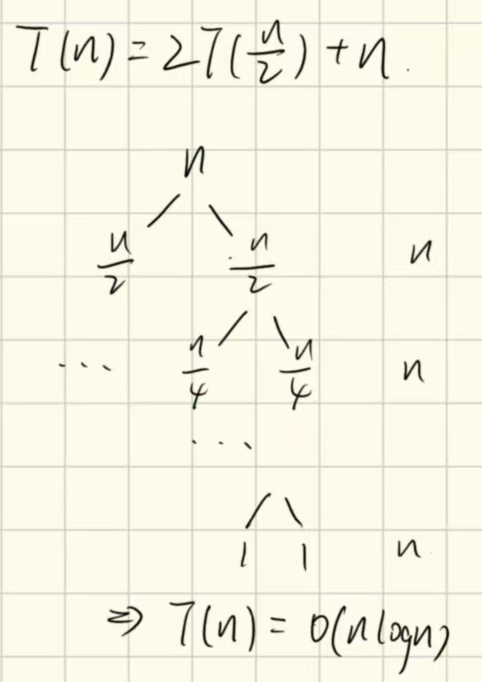 T(n) = 2T(n/2) + n.
n
n/2 n/2 n
... n/4 n/4 n
...
1 1 n
⇒ T(n) = O(n logn)